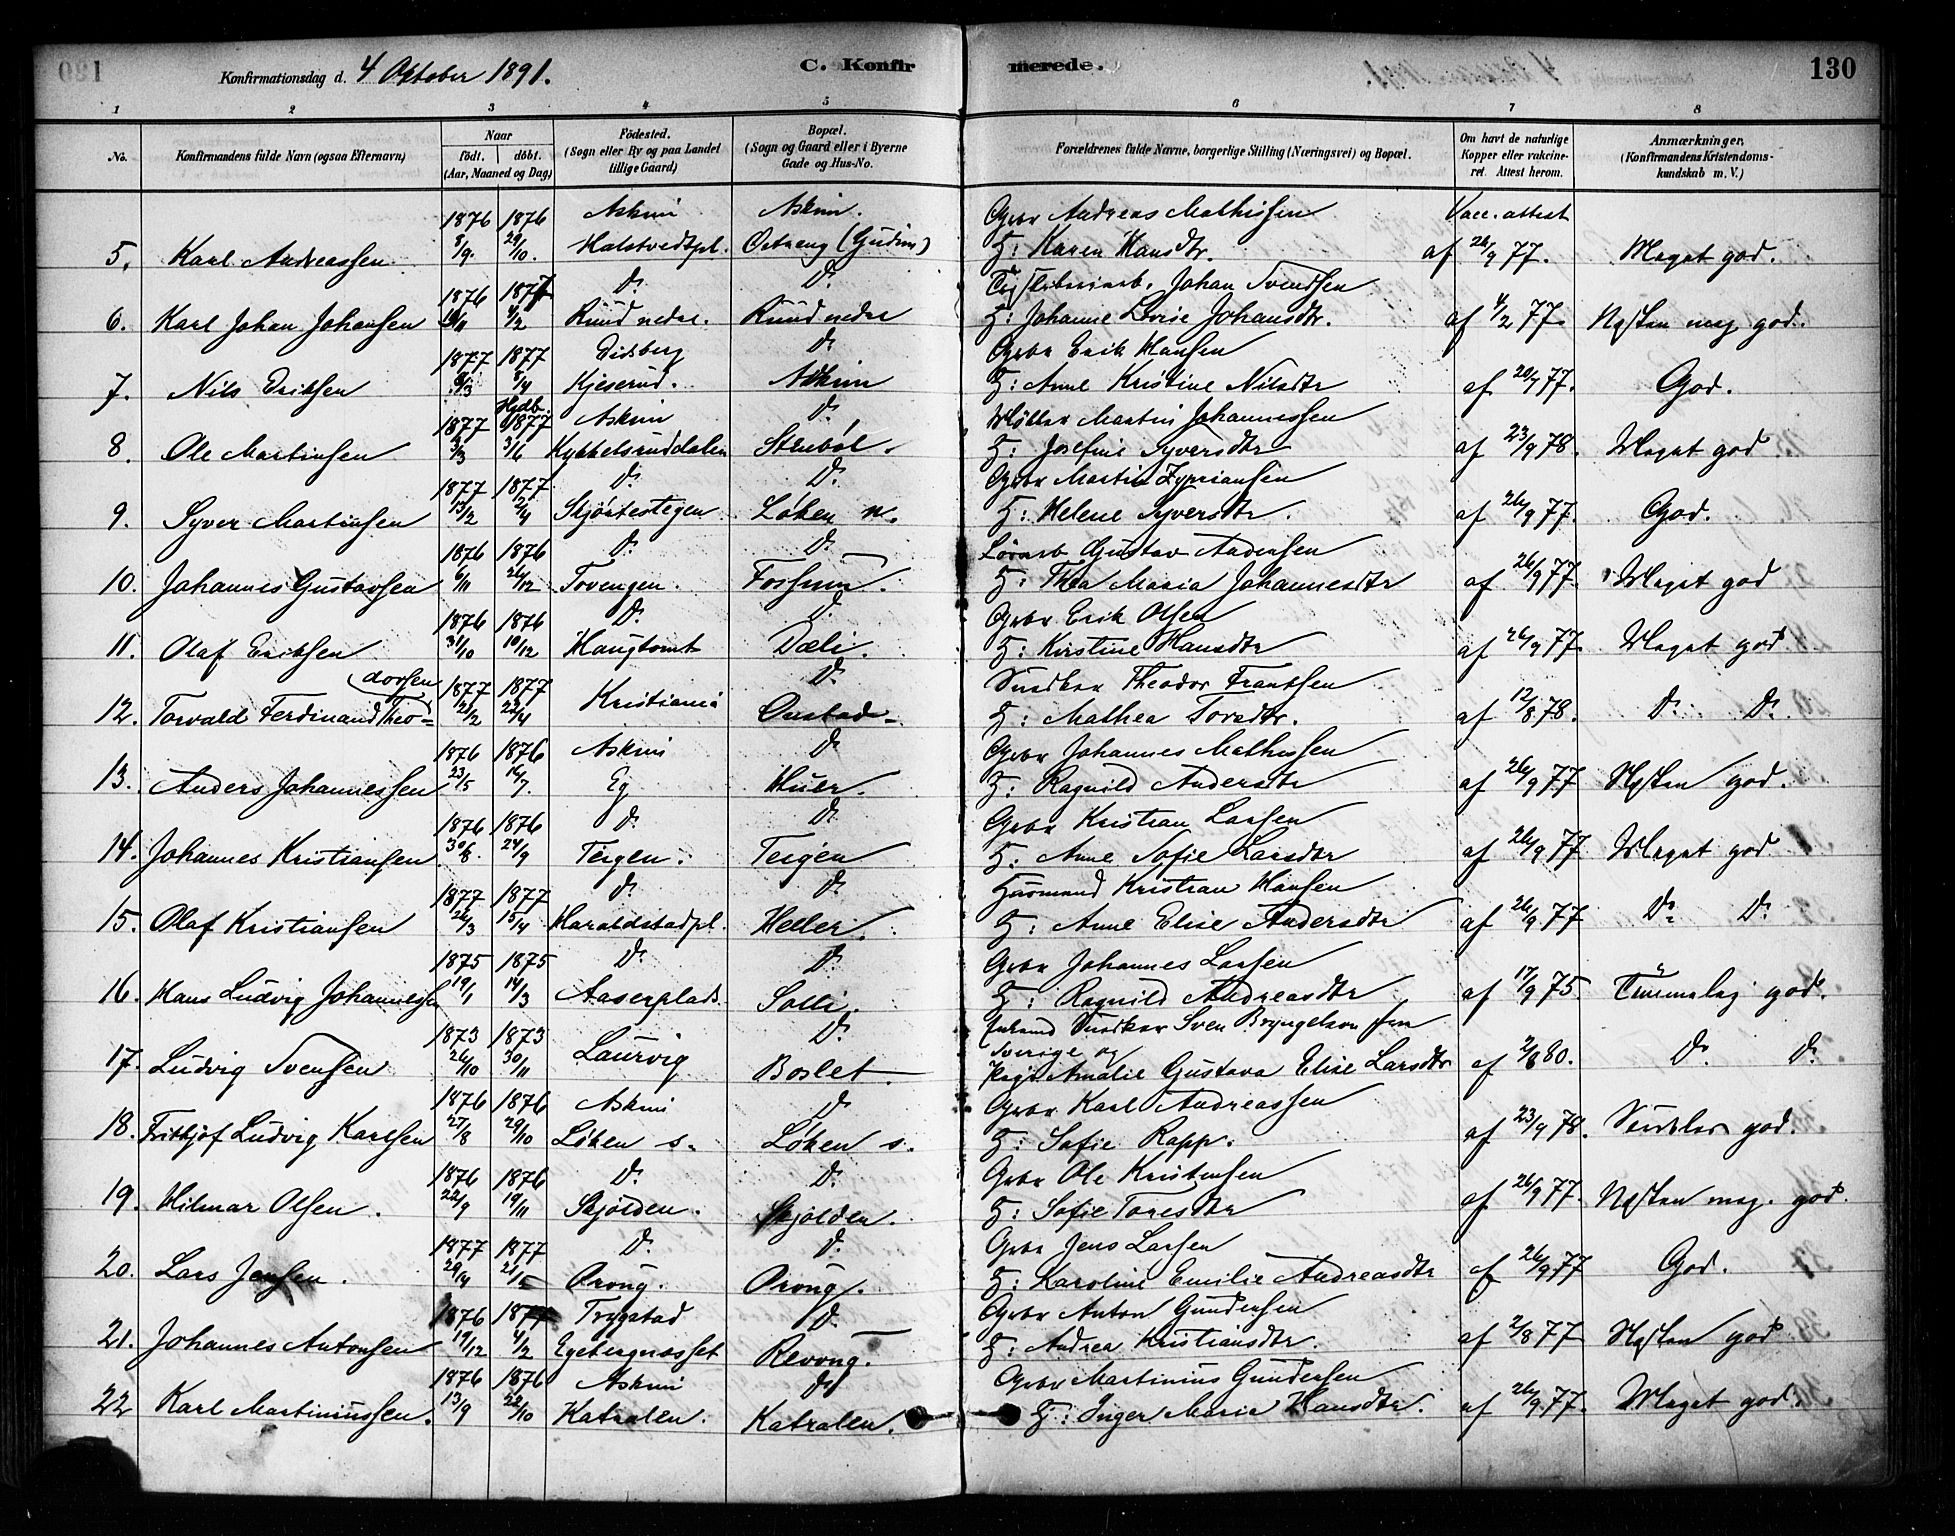 Konfirmationsdag d. 4 Oktober 1891. C. Konfirmerede. 130
1 2 3 4 5 6 7 8
No. Konfirmandens fulde Navn (ogsaa Efternavn) Naar födt. döbt. (Aar, Maaned og Dag) Födested. (Sogn eller By og paa Landet tillige Gaard) Bopæl. (Sogn og Gaard eller i Byerne Gade og Hus-No. Forældrenes fulde Navne, borgerlige Stilling (Næringsvei) og Bopæl. Om havt de naturlige Kopper eller vakcineret. Attest herom. Anmærkninger. (Konfirmandens Kristendomskundskab m. V.)
1876 1876 Askim Askim. Gbr Andreas Mathissen Vacc. attest
5. Karl Andreassen 8/9. 29/10. Halstvedtpl. Østreng (Gudim) H: Karen Hansdtr. af 26/9 77. Meget god.
1876 1877 Do Do Johan Svendsen
6. Karl Johan Johansen 4/2 Ruud nedre. Ruud nedre H: Johanne Lovise Johansdtr. af 4/2 77. Næsten meg god.
1877 1877 Eidsberg Do Gbr Erik Hansen
7. Nils Eriksen 8/4 Kjeserud. Askim H: Anne Kristine Nilsdtr af 20/7 77. God.
1877 Hjdb. 1877 Askim Do Møller Martin Johannessen
8. Ole Martinsen 3/3 3/6 Kykkelsruddalen Stubøl. H: Josefine Syversdtr af 23/9 78. Meget god
1877 1877 Do Do Gbr Martin Zypriansen
9. Syver Martinsen 13/2 2/4 Skjørtestegen Løken n. H: Helene Syversdtr. af 26/9 77. God.
1876 1876 Do Do Gustav Andersen
10. Johannes Gustavsen 6/11 26/12 Tovengen. Fossum. H: Thea Maria Johannesdtr af 26/9 77. Meget god
1876 1876 Do Do Gbr Erik Olsen
11. Olaf Eriksen 31/10 10/12 Haugtomt Dæli. H: Kirstine Hansdtr af 26/9 77. Meget god
dorsen 1877 1877 Kristiania Do Snedker Theodor Frantsen
12. Torvald Ferdinand Theo= 21/2 22/4 Onstad. H: Mathea Toredtr. af 12/8 78. Do Do
1876 1876 Askim Do Gbr Johannes Mathissen
13. Anders Johannessen 23/5 16/7. Eg Huer. H: Ragnild Andersdtr af 26/9 77. Næsten god.
1876 1876 Do Do Gbr Kristian Larsen
14. Johannes Kristiansen 30/8. 24/9 Teigen. Teigen H: Anne Sofie Larsdtr af 26/9 77 Meget god
1877 1877 Do Do Husmand Kristian Hansen
15. Olaf Kristiansen 26/3 15/4 Haraldstadpl. Heller. H: Anne Elise Andersdtr af 26/9 77 Do Do
1875 1875 Do Do Gbr Johannes Larsen
16. Hans Ludvig Johannessen 19/1 14/3 Aaserplads Solli. H: Ragnild Andreasdtr af 17/9 75. Temmelig god.
1873 1873 Laurvig Do Snedker Sven Bryngelson fra
17. Ludvig Svensen 26/10 30/11 Boslet. Sverige og Pige Amalie Gustava Elise Larsdtr af 2/8 80. Do Do
1876 1876 Askim Do Gbr Karl Andreassen
18. Frithjof Ludvig Karlsen 27/8 29/10 Løken s. Løken s. H: Sofie Rapp. af 23/9 78. Særdeles god.
1876 1876 Do Do Gbr Ole Kristensen
19. Hilmar Olsen. 22/9 19/11 Skjølden. Skjølden. H: Sofie Toresdtr af 26/9 77 Næsten meg. god.
1877 1877 Do Do Gbr Jens Larsen
20. Lars Jensen. 29/4 21/5 Prong. Prong. H: Karoline Emilie Andreasdtr af 26/9 77 God.
1876 1877 Trygstad Do Gbr Anton Gundersen
21. Johannes Antonsen 19/12 4/2 Egebergnæsset Revong. H: Andrea Kristiansdtr. af 2/8 77 Næsten god
1876 1876 Askim Do Gbr Martinius Gundersen
22 Karl Martiniussen. 13/9 22/10 Katralen. Katralen. H: Inger Marie Hansdtr. af 26/9 77. Meget god.